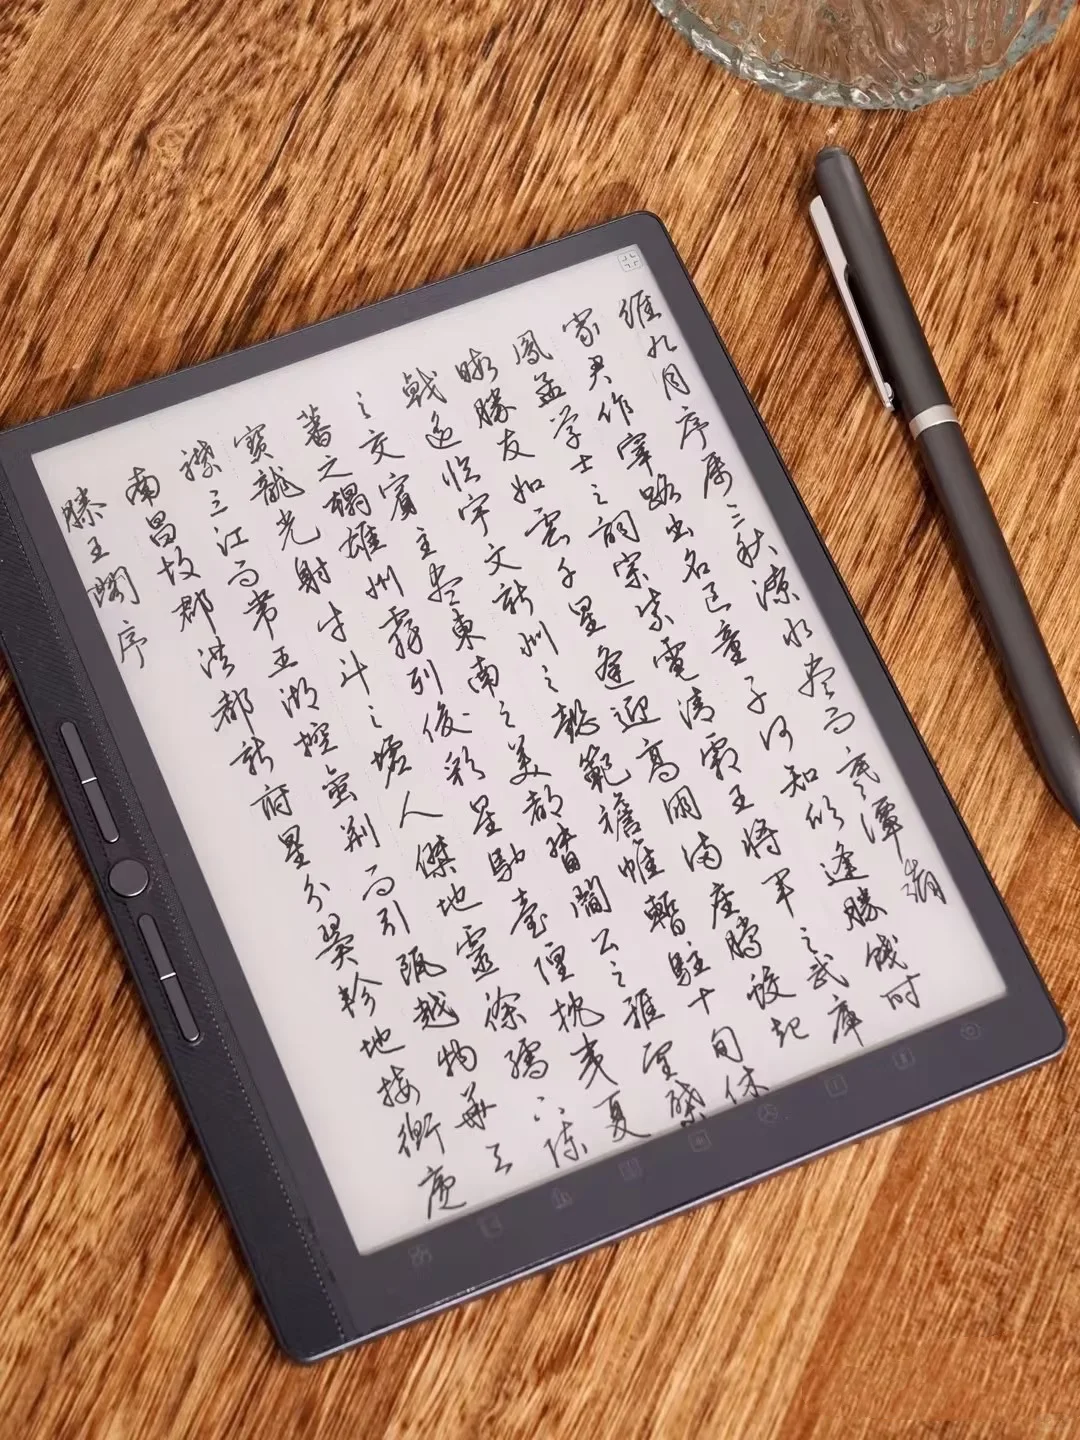 滕王閣序
南昌故郡洪都新府星分翼軫地接衡廬
襟三江而帶五湖控蛮荆而引甌越物華天
寶龍光射牛斗之墟人傑地靈徐孺下陳
蕃之榻雄州霧列俊彩星馳臺隍枕夷夏
之交賓主盡東南之美都督閻公之雅望棨
戟遥臨宇文新州之懿範襜帷暫駐十旬休
暇勝友如雲千里逢迎高朋滿座騰蛟起
鳳孟学士之詞宗紫電清霜王將軍之武庫
家君作宰路出名區童子何知躬逢勝餞时
維九月序属三秋潦水盡而寒潭清